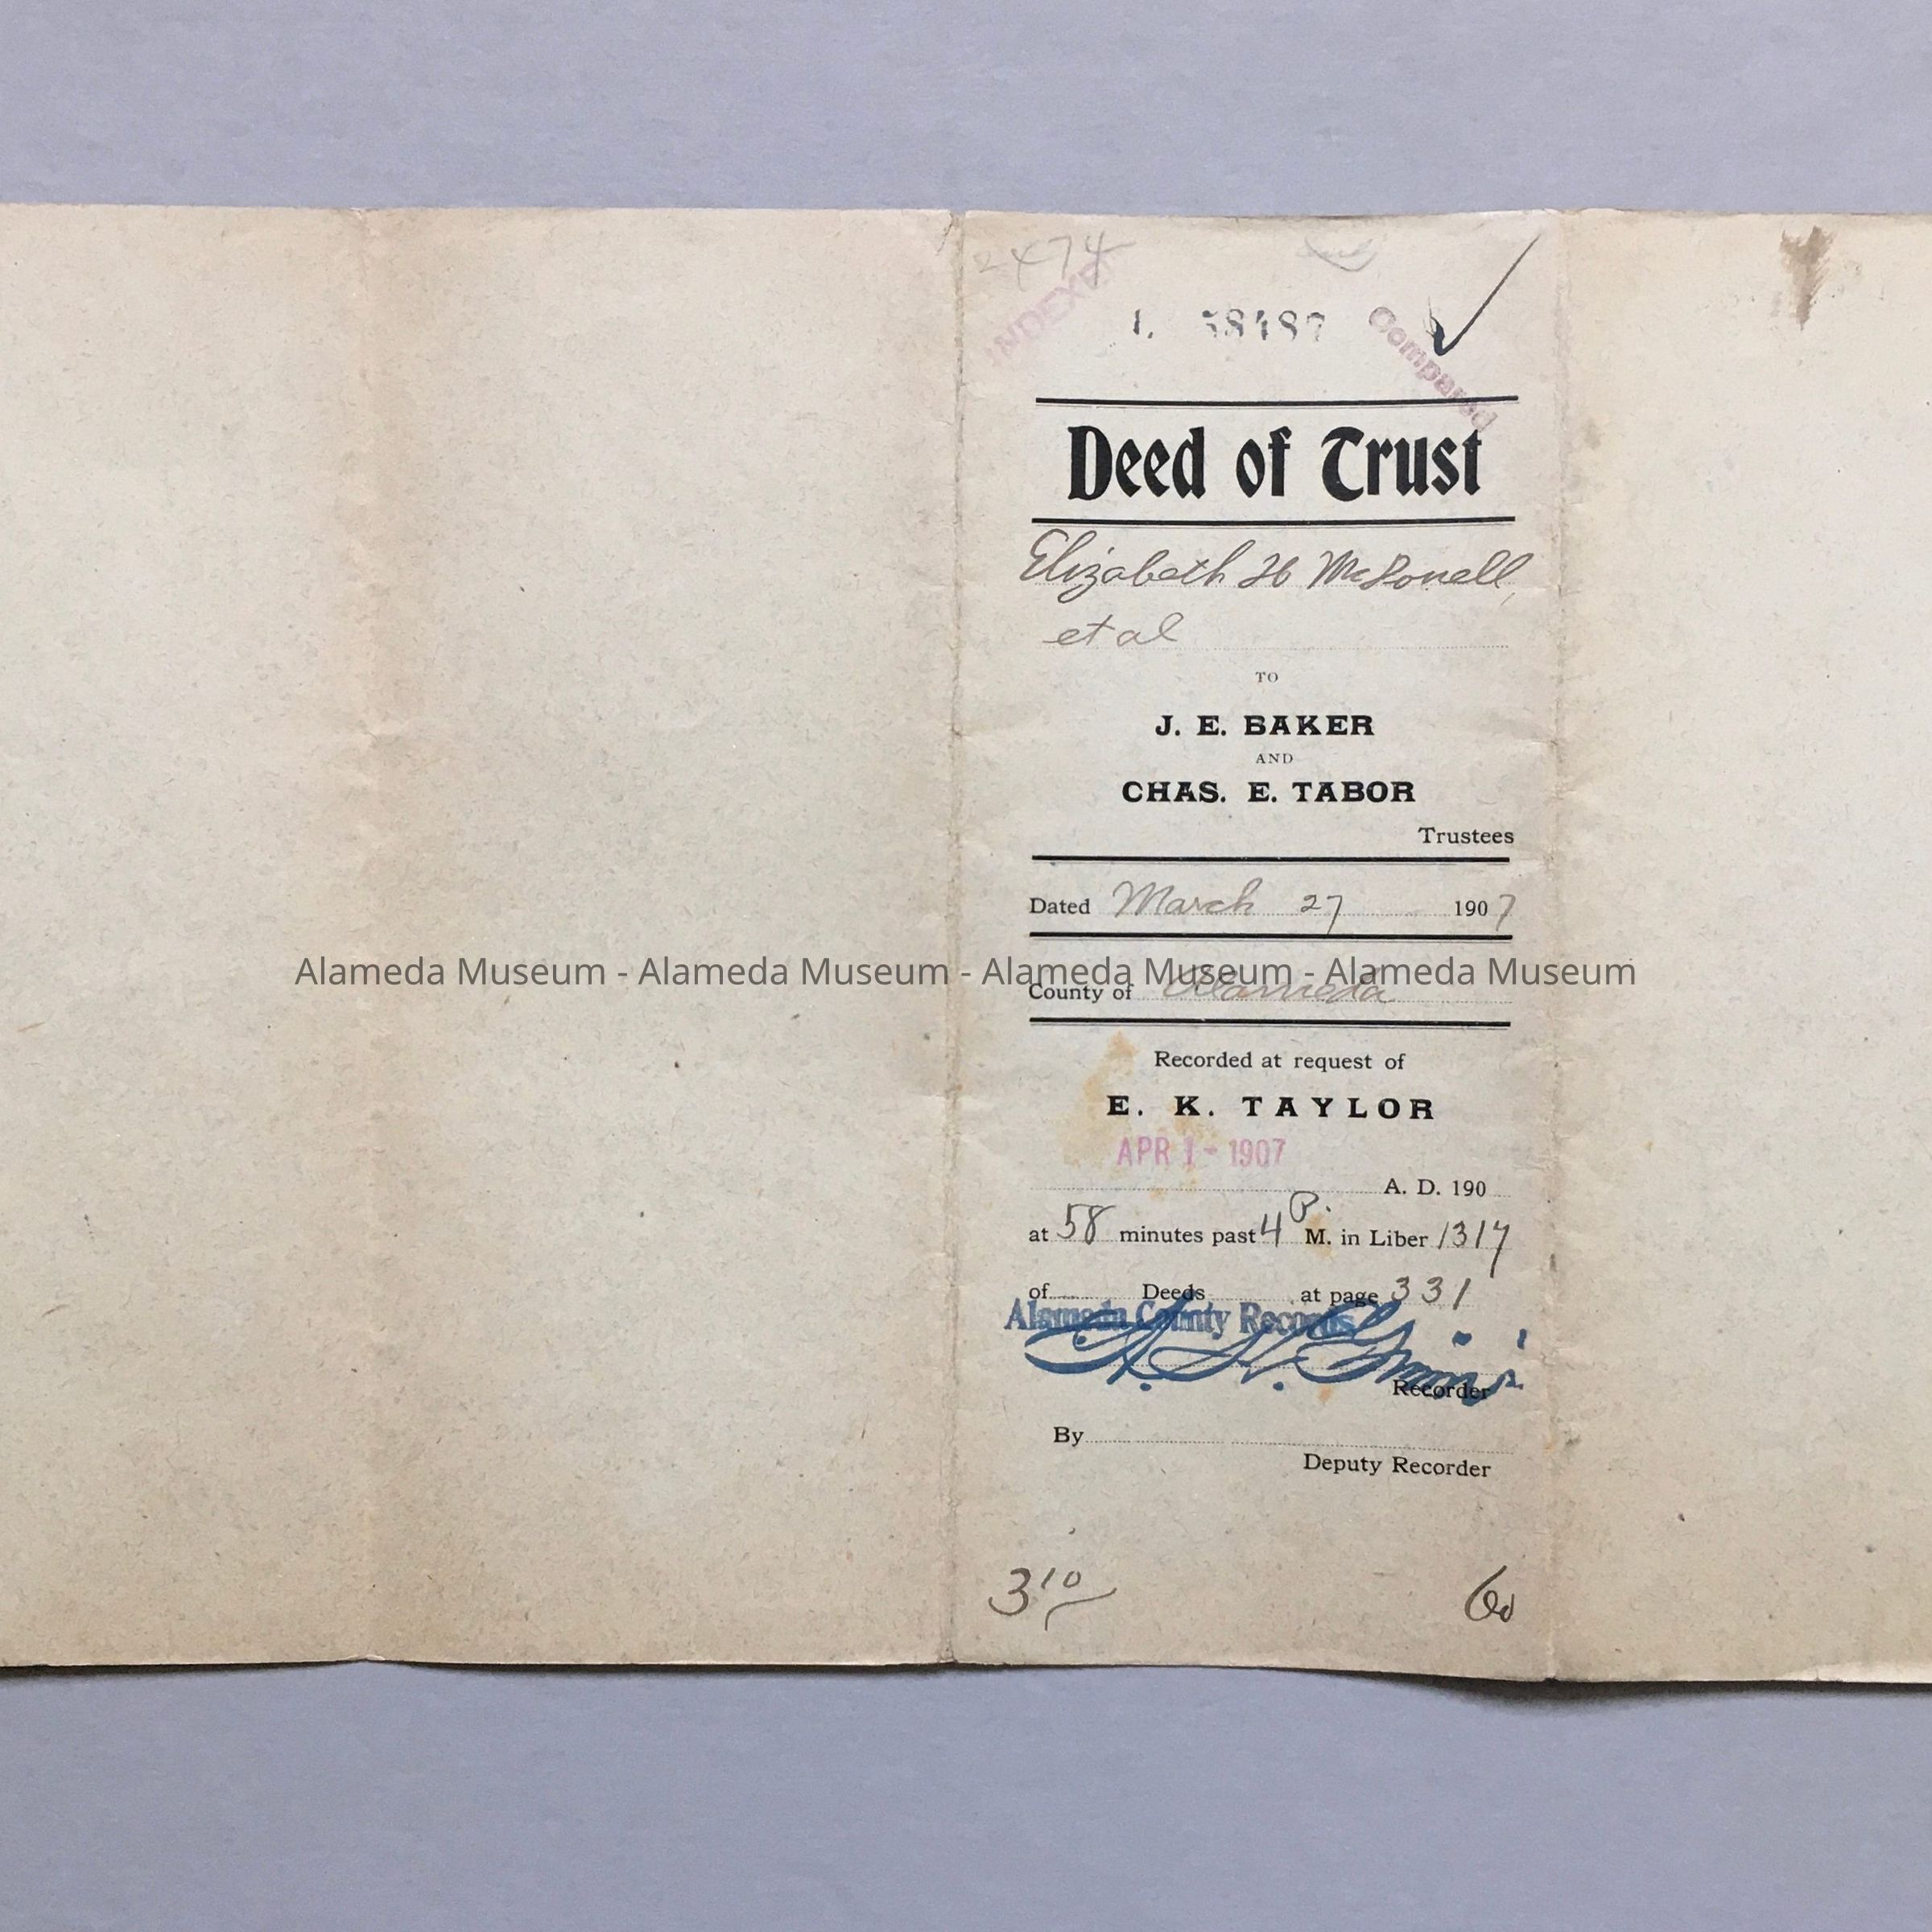 2474
INDEXED
Compared
Deed of Trust
Elizabeth H McDonell,
et al
TO
J. E. BAKER
AND
CHAS. E. TABOR
Trustees
Dated March 27 1907
Alameda Museum - Alameda Museum - Alameda Museum - Alameda Museum
County of Alameda
Recorded at request of
E. K. TAYLOR
APR 1 - 1907
A. D. 190
at 58 minutes past 4 P. M. in Liber 1317
of Deeds at page 331
Alameda County Records
Recorder
By
Deputy Recorder
3 10
60